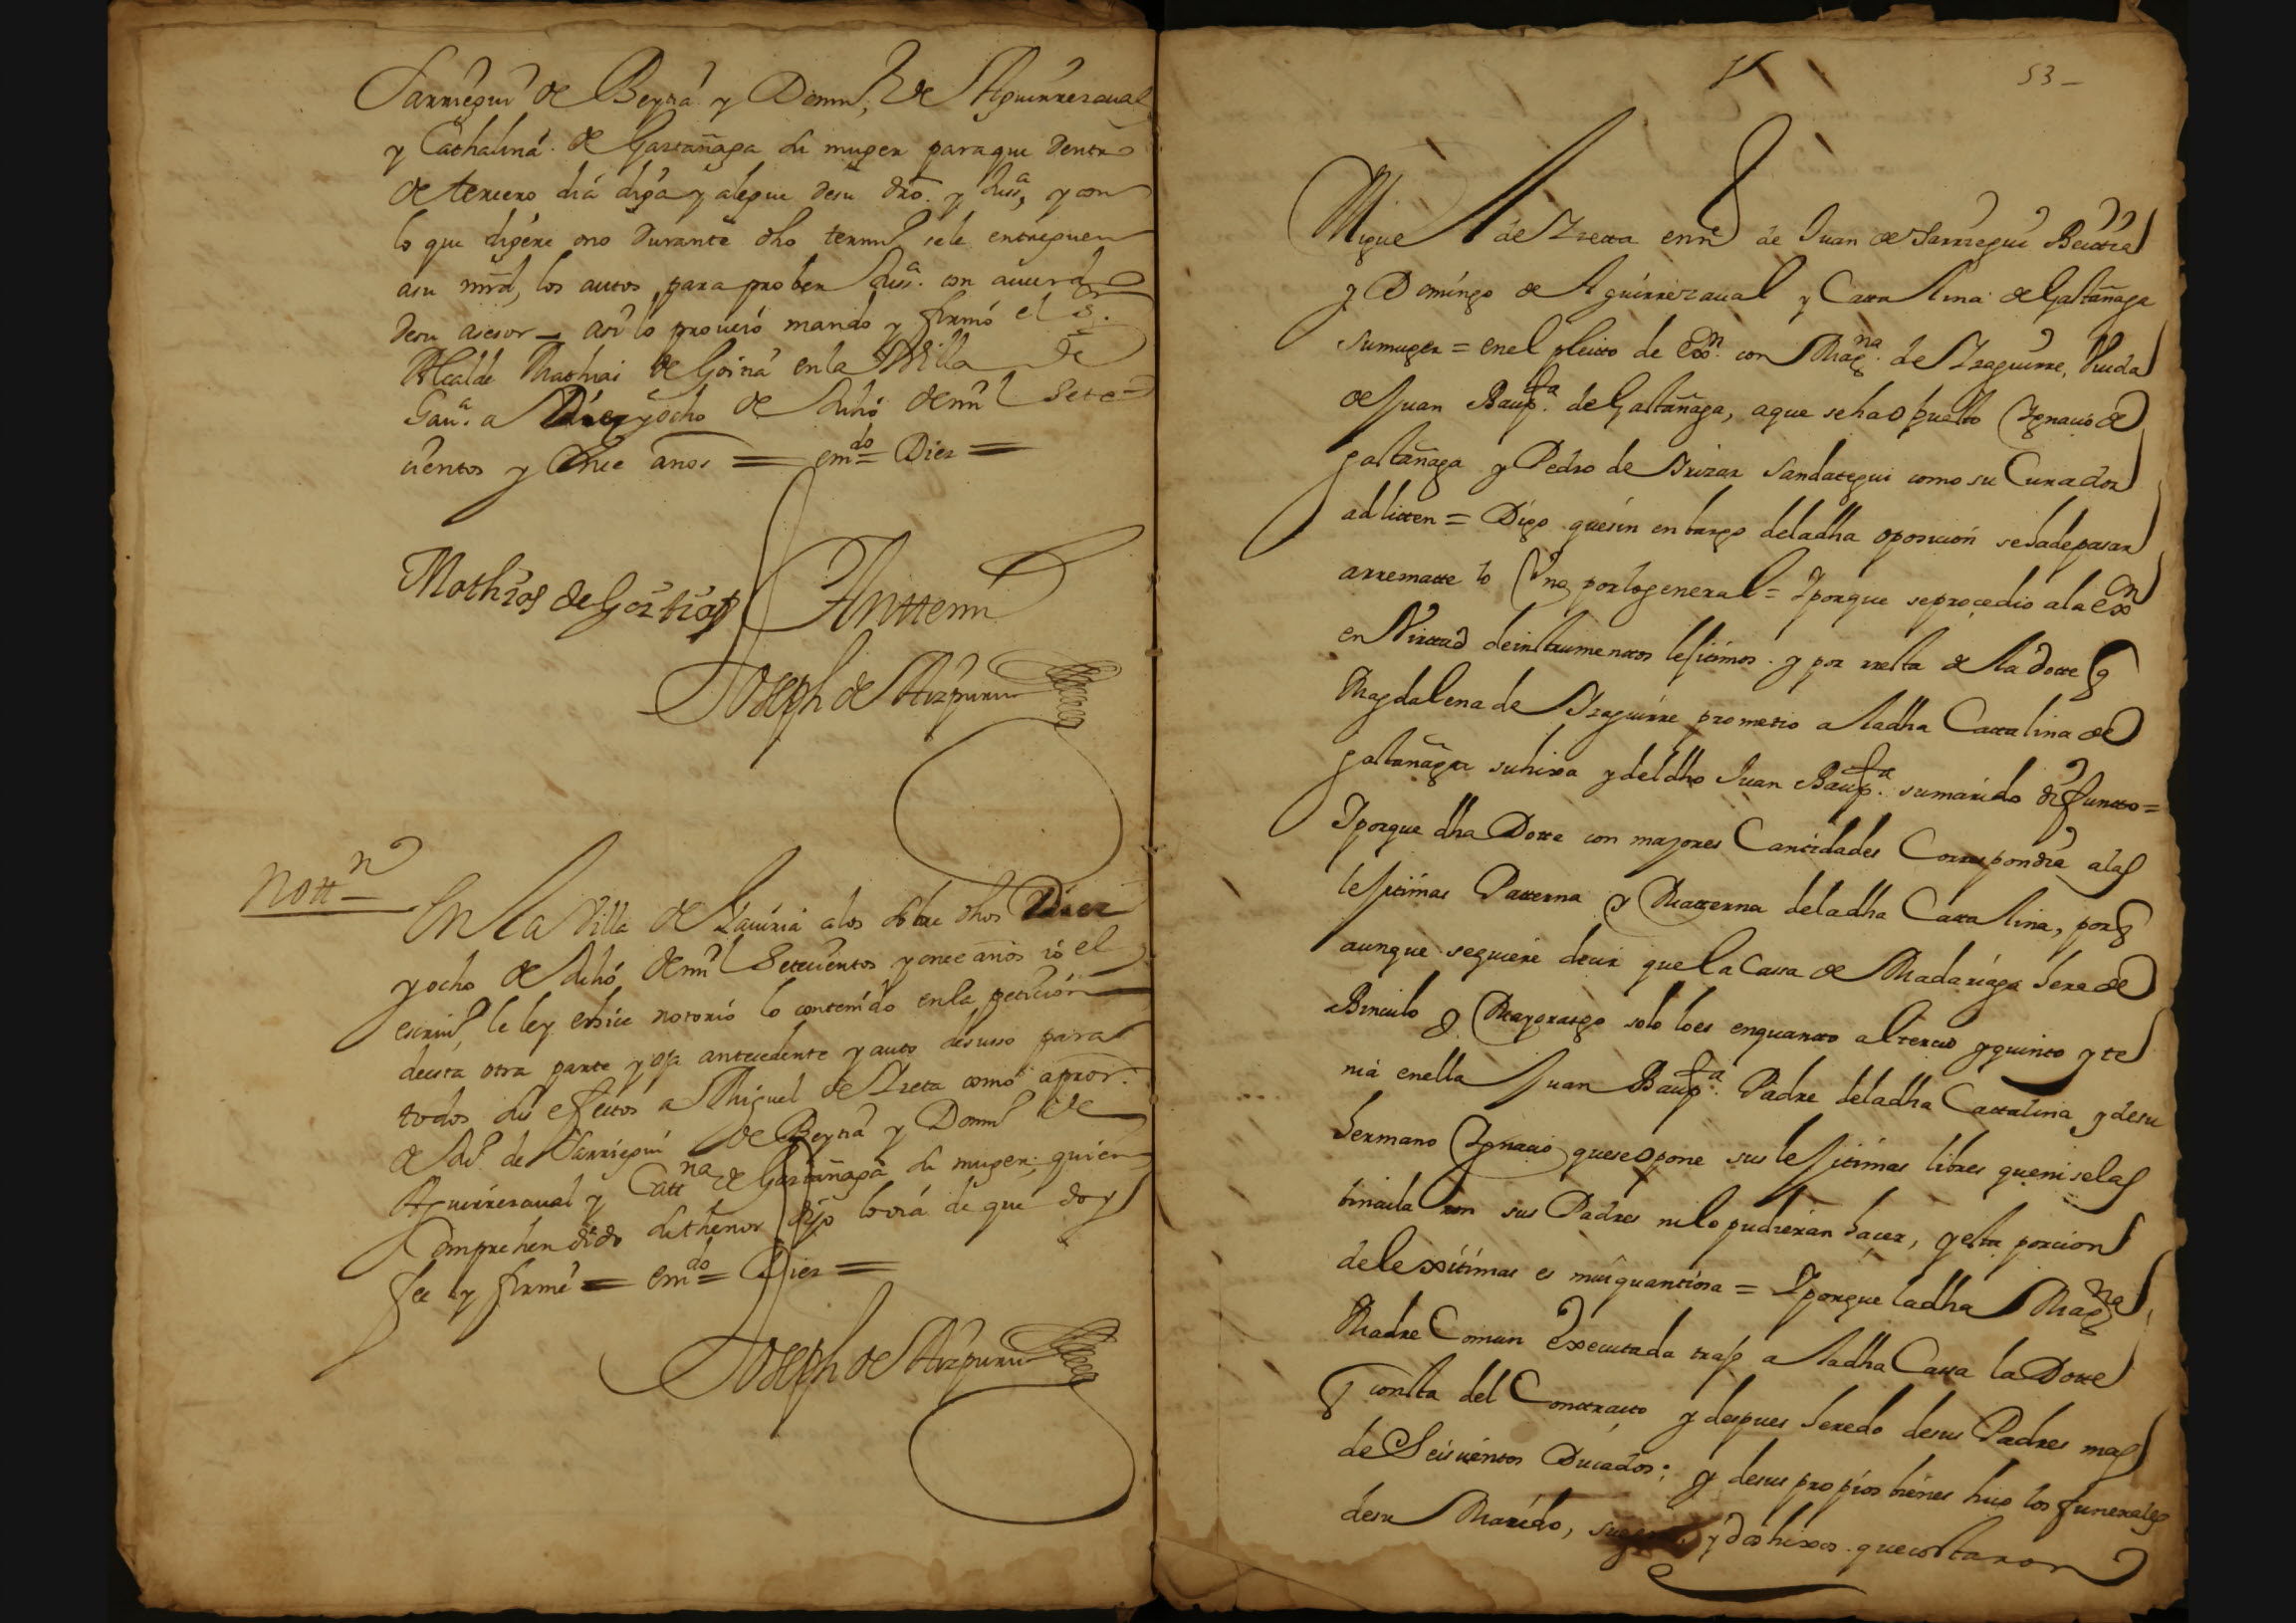 Sarriegui de Beyttia y Domin.º de Aguirrezaual
y Cathalina de Gastañaga su muger para que dentro
de tercero dia diga y alegue de su dro. y Juss.ª, y con
lo que digere o no durante dho termi.º se le entreguen
a su mrd, los autos para prober Juss.ª con acuerdo
de su asesor — asi lo proueió mando y firmó el S.r
Alcalde Mathias de Goitia en la Villa de
Gau.ª a Diez y ocho de Julió de mil Sete=
cientos y Onze años = em.do = Diez =
Mathias de Goitia
Anttemi
Joseph de Aizpuru
Nott.n
En la Villa de Gauiria a los sobre dhos Diez
y ocho de Julió de mil Setecientos y onze años ió el
escriu.º le ley e hice notorió lo contenido en la petición
de esta otra parte y oja antecedente y auto de suso para
todos sus efectos a Miguel de Yreta como a pror.
de Ju.º de Sarriegui de Beytia y Domin.º de
Aguirrezaual y Catt.na de Gastañaga su muger; quien
Comprehendido su thenor dijo lo oiá de que doy
fee y firmé = em.do = Diez =
Joseph de Aizpuru
53 -
Miguel de Yretta en ne de Juan de Sarriegui Beittia
y Domingo de Aguirrezaual y Catta lina de Gastañaga
su muger = en el pleitto de exon. con Mag.na de Yzaguirre, Viuda
de Juan Baup.ta de Gastañaga, a que se ha opuesto Ygnacio de
gastañaga y Pedro de Yrizar Sandategui como su Curador
ad litten = Digo que sin enbargo de la dha oposicion se ha de pasar
a rrematte lo Vno por lo general = Y porque se procedio a la exon
en Virttud de instrumenttos lejitimos y por rresta de la dotte q
Magdalena de Yzaguirre prometio a la dha Cattalina de
gastañaga su hixa y del dho Juan Baup.ta su marido difuntto =
Y porque dha Dotte con mayores Cantidades Correspondia a las
lejitimas Patterna y Matterna de la dha Catta lina, porq
aunque se quiere decir que la Cassa de Madariaga hera de
Binculo y Mayorasgo solo lo es en quantto al tercio y quinto y te
nia en ella Juan Baup.ta Padre de la dha Cattalina y de su
hermano Ygnacio que se opone sus lejitimas libres que ni se las
bincula ron sus Padres ni lo pudieran hacer, y esta porcion
de lexitimas es mui quantiosa = Y porque la dha Mag.na
Madre Comun Executada trajo a la dha Cassa la Dotte
q consta del Conttracto y despues heredo de sus Padres mas
de Seiscientos Ducados; y de sus propios bienes hiço los funerales
de su Marido, y dos hixos que costaron